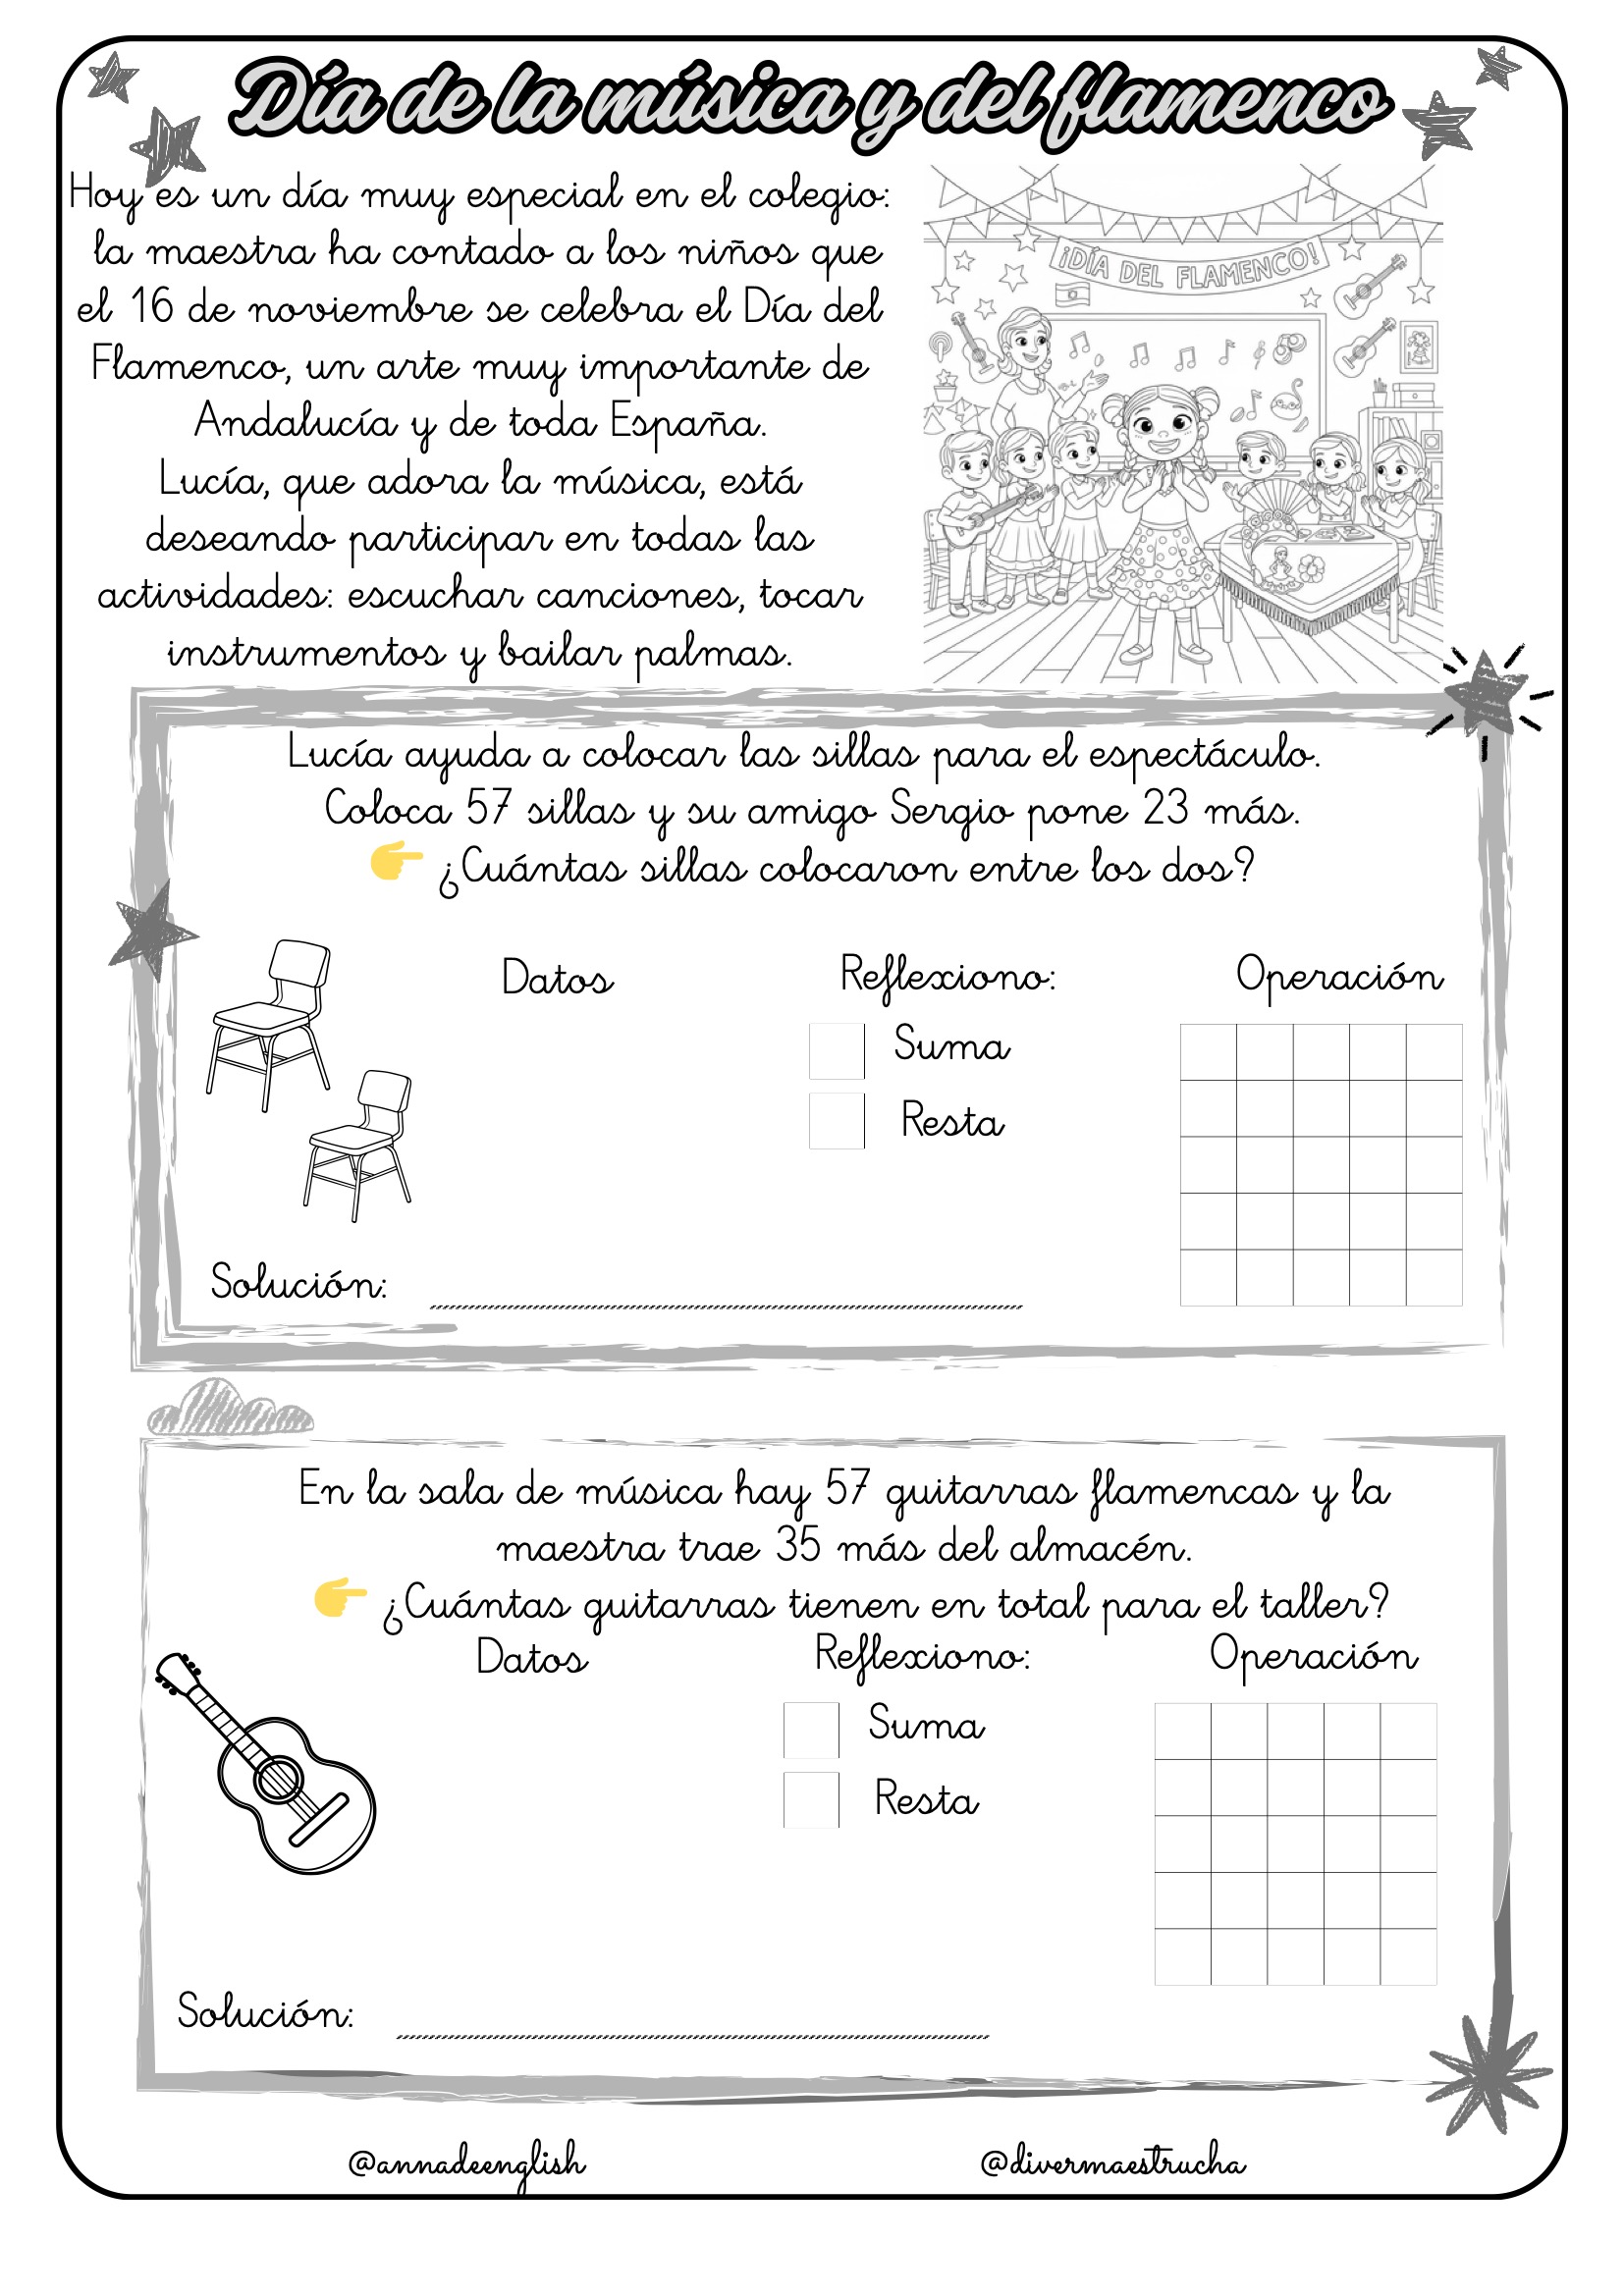 Día de la música y del flamenco
Hoy es un día muy especial en el colegio:
la maestra ha contado a los niños que
el 16 de noviembre se celebra el Día del
Flamenco, un arte muy importante de
Andalucía y de toda España.
Lucía, que adora la música, está
deseando participar en todas las
actividades: escuchar canciones, tocar
instrumentos y bailar palmas.
¡DÍA DEL FLAMENCO!
Lucía ayuda a colocar las sillas para el espectáculo.
Coloca 57 sillas y su amigo Sergio pone 23 más.
👉 ¿Cuántas sillas colocaron entre los dos?
Datos
Reflexiono:
Operación
Suma
Resta
Solución:
En la sala de música hay 57 guitarras flamencas y la
maestra trae 35 más del almacén.
👉 ¿Cuántas guitarras tienen en total para el taller?
Datos
Reflexiono:
Operación
Suma
Resta
Solución:
@annadeenglish
@divermaestrucha